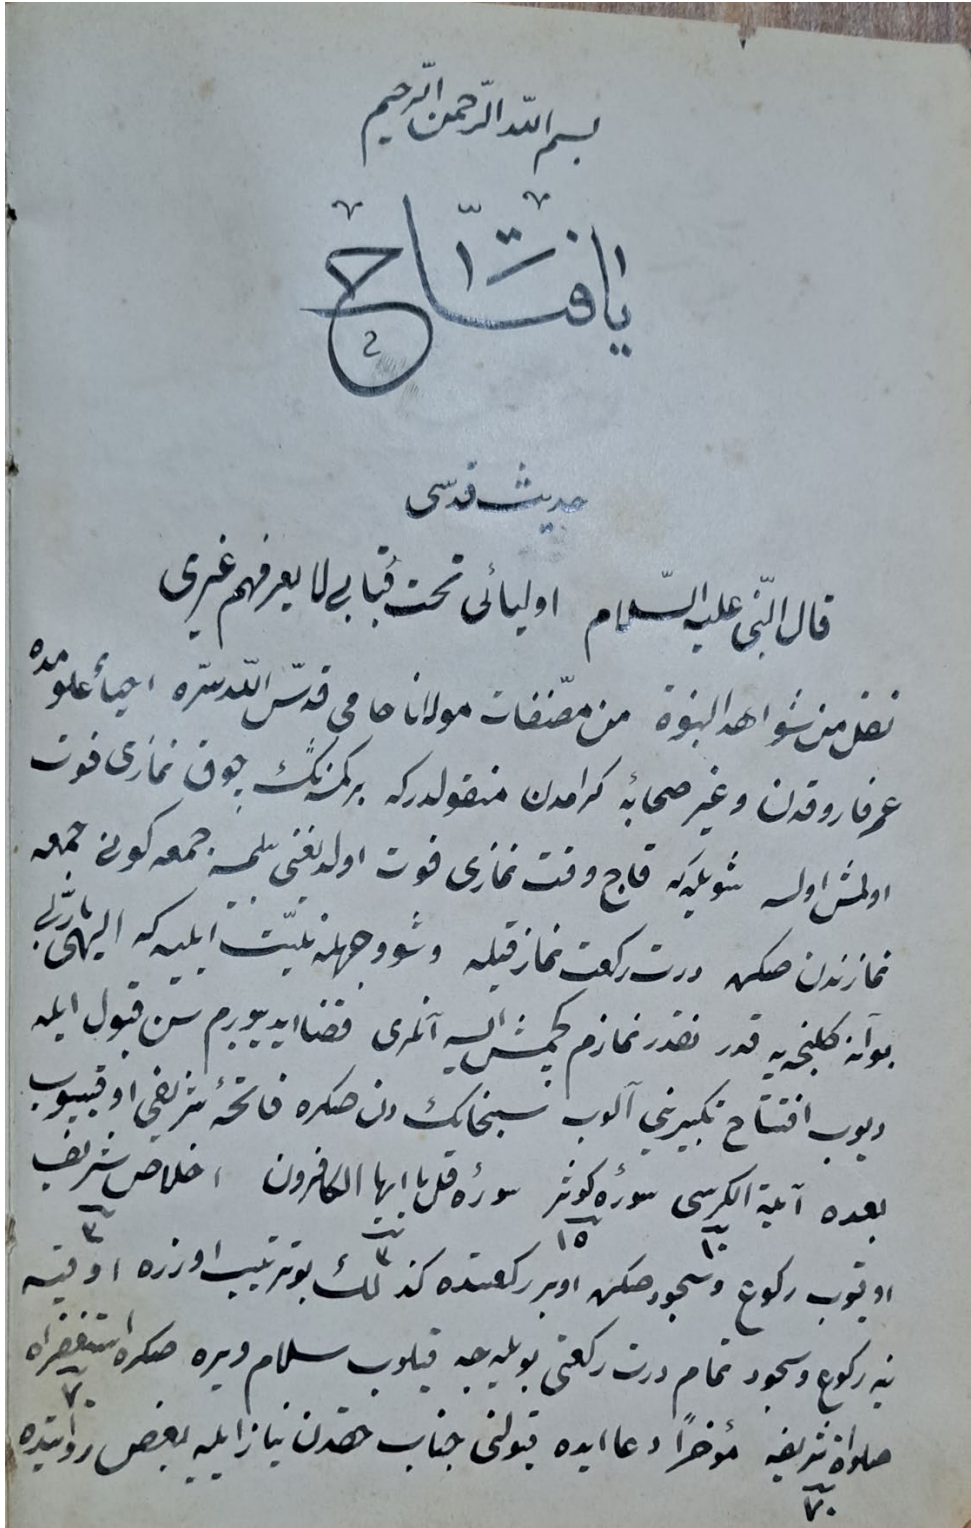 بسم الله الرّحمن الرّحيم
يا فتّاح
٢
حديث قدسى
قال النّبى عليه السّلام اوليائى تحت قبابى لا يعرفهم غيرى
نقل من شواهد النبوة من مصنّفات مولانا جامى قدّس الله سرّه احياء علومده
عمر فاروقدن و غير صحابۀ كرامدن منقولدركه بر كمسنه‌نڭ چوق نمازى فوت
اولمش اولسه شويله‌كه قاچ وقت نمازى فوت اولديغنى بيلمسه جمعه كونى جمعه
نمازندن صكره درت ركعت نماز قيله و شو وجهله نيّت ايليه كه الهى يا ربّى
بو آنه كلنجيه قدر نقدر نمازم كچمش ايسه آنلرى قضا ايدييورم سن قبول ايله
ديوب افتتاح تكبيرينى آلوب سبحانك دن صكره فاتحۀ شريفى اوقيوب
بعده آية الكرسى سورۀ كوثر سورۀ قل يا ايها الكافرون اخلاص شريف
١٠ ١٥ ٣ ٣
اوقيوب ركوع و سجود صكره اوبر ركعتده كذلك بو ترتيب اوزره اوقيه
ينه ركوع و سجود تمام درت ركعتى بويله‌جه قيلوب سلام ويره صكره استغفرالله
٧٠
صلواة شريفه مؤخراً دعا ايده قبولنى جناب حقدن نياز ايليه بعض روايتده
٧٠